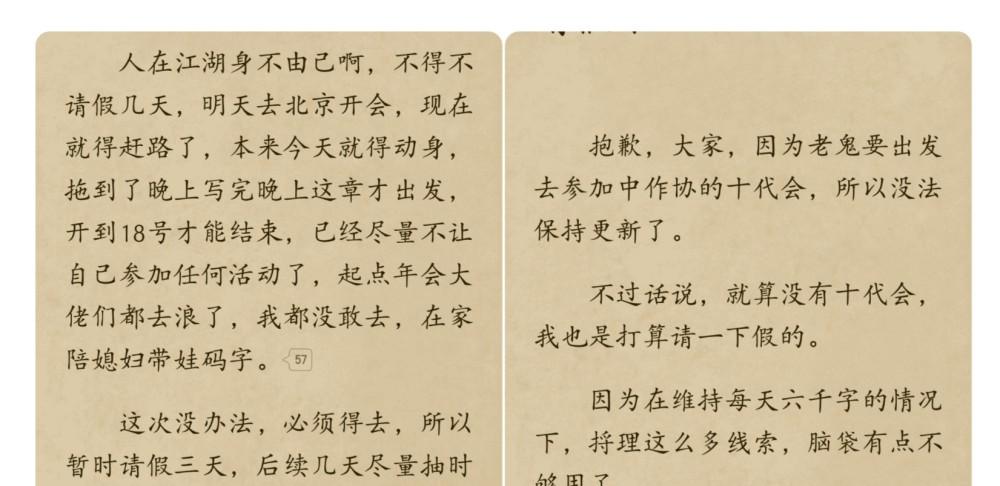 人在江湖身不由己啊，不得不
请假几天，明天去北京开会，现在
就得赶路了，本来今天就得动身，
拖到了晚上写完晚上这章才出发，
开到18号才能结束，已经尽量不让
自己参加任何活动了，起点年会大
佬们都去浪了，我都没敢去，在家
陪媳妇带娃码字。
57
这次没办法，必须得去，所以
暂时请假三天，后续几天尽量抽时
抱歉，大家，因为老鬼要出发
去参加中作协的十代会，所以没法
保持更新了。
不过话说，就算没有十代会，
我也是打算请一下假的。
因为在维持每天六千字的情况
下，捋理这么多线索，脑袋有点不
够用了